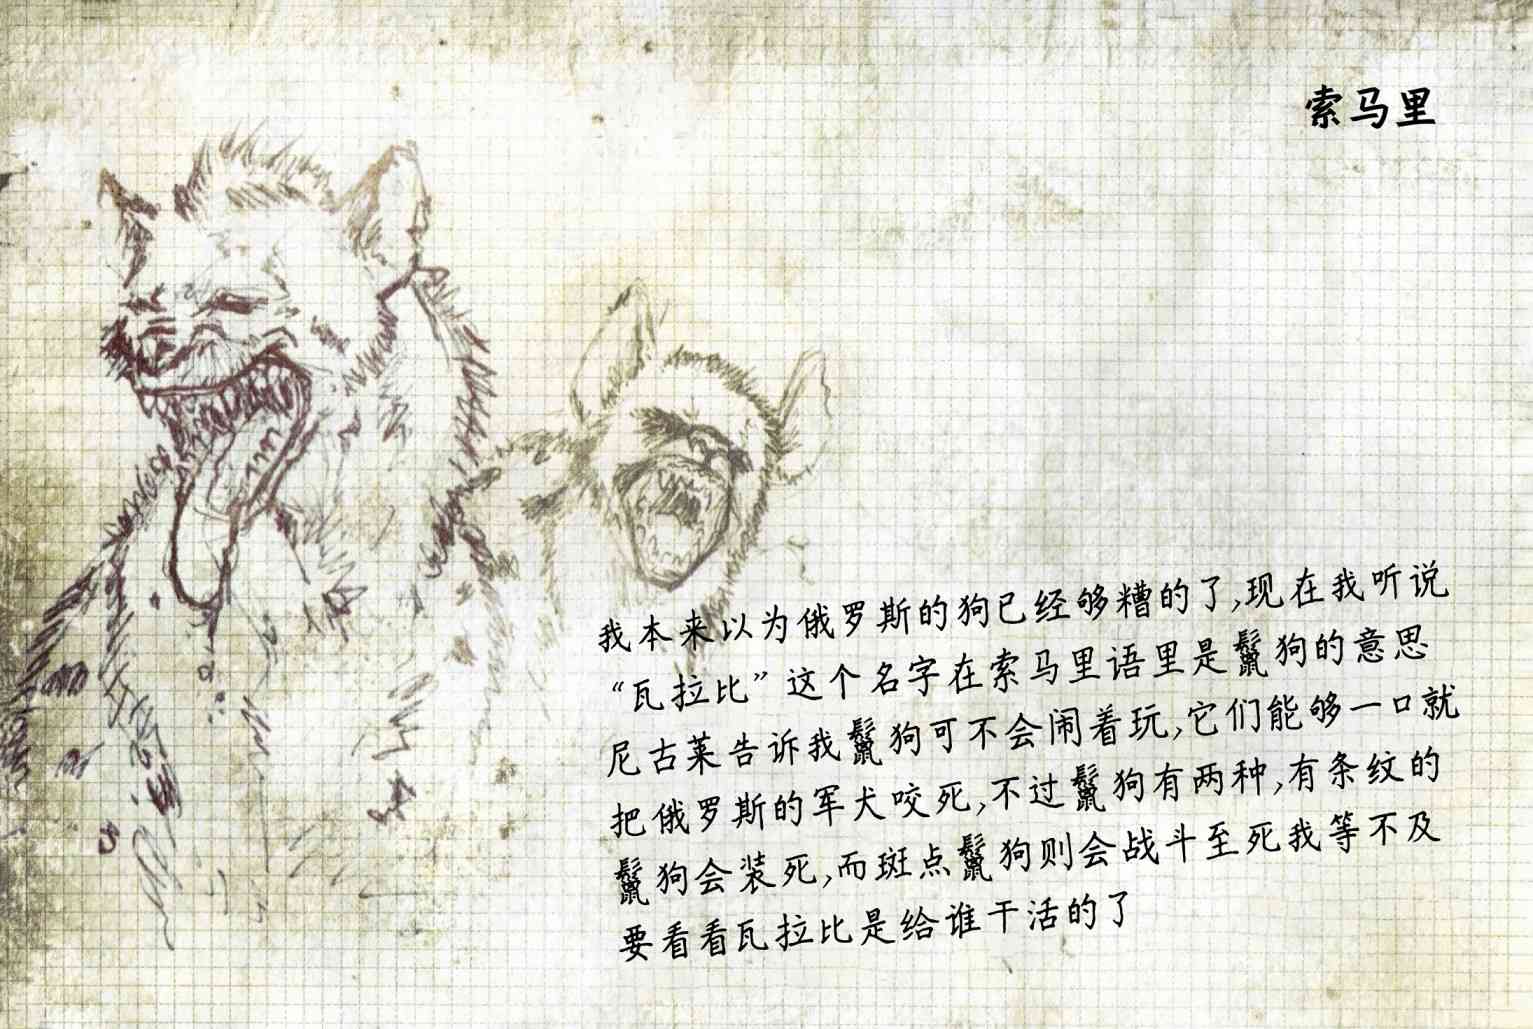 索马里
我本来以为俄罗斯的狗已经够糟的了,现在我听说
“瓦拉比”这个名字在索马里语里是鬣狗的意思
尼古莱告诉我鬣狗可不会闹着玩,它们能够一口就
把俄罗斯的军犬咬死,不过鬣狗有两种,有条纹的
鬣狗会装死,而斑点鬣狗则会战斗至死我等不及
要看看瓦拉比是给谁干活的了